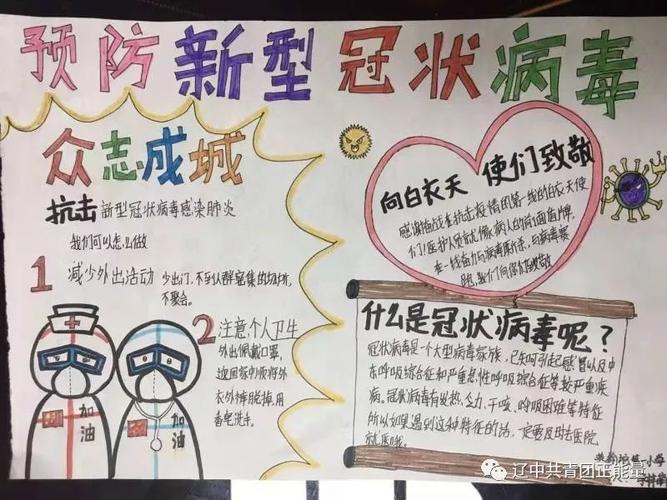 预防新型冠状病毒
众志成城
抗击新型冠状病毒感染肺炎
我们可以怎么做
1 减少外出活动 少出门,不到人群密集的场所,
不聚会。
2 注意个人卫生
外出佩戴口罩,
返回家中顺将外
衣外裤脱掉,用
香皂洗手。
加油
加油
向白衣天使们致敬
感谢奋战在抗击疫情的第一线的白衣天使
们!医护人员就像病人的
在一线奋力与病毒
跑,我们向你们致敬
什么是冠状病毒呢?
冠状病毒是一个大型病毒家族,已知可引起感冒以及中
东呼吸综合征和严重急性呼吸综合征等较严重疾
病。冠状病毒有发热、乏力、干咳、呼吸困难等特征
所以如果遇到这种特征的话,一定要及时去医院
就医哦。
第一小学
辽中共青团正能量